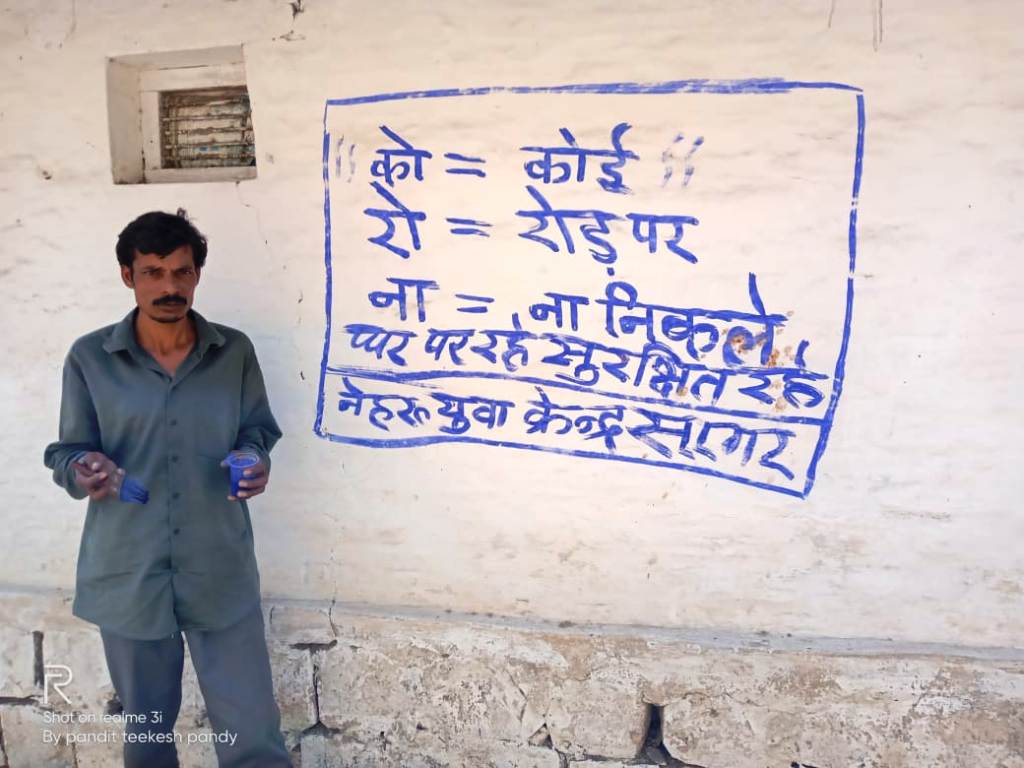 "को = कोई "
रो = रोड़ पर
ना = ना निकले,
घर पर रहे सुरक्षित रहे
नेहरू युवा केन्द्र सागर
R
Shot on realme 3i
By pandit teekesh pandy